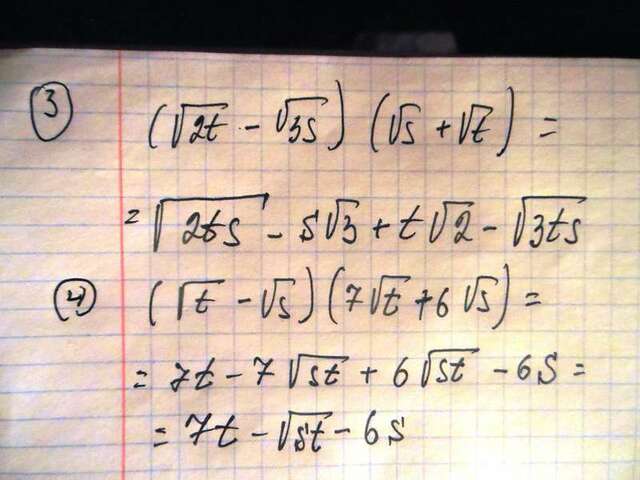 ③ (√2t - √3s) (√s + √t) =
= √2ts - s√3 + t√2 - √3ts
④ (√t - √s) (7√t + 6√s) =
= 7t - 7√st + 6√st - 6s =
= 7t - √st - 6s